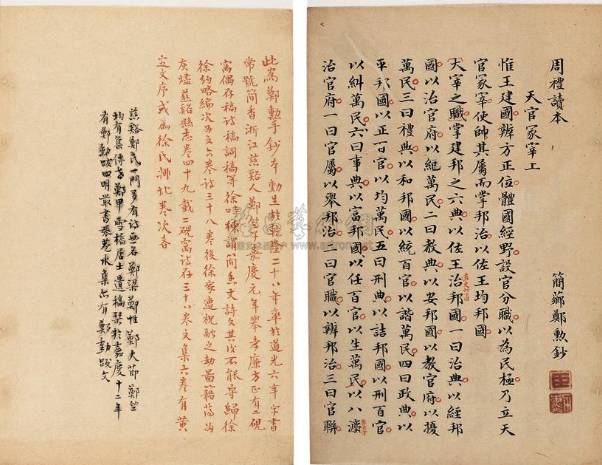 周禮讀本
天官冢宰上
簡薌鄭勲鈔
惟王建國辨方正位體國經野設官分職以為民極乃立天
官冢宰使帥其屬而掌邦治以佐王均邦國
大宰之職掌建邦之六典以佐王治邦國一曰治典以經邦
國以治官府以紀萬民二曰教典以安邦國以教官府以擾
萬民三曰禮典以和邦國以統百官以諧萬民四曰政典以
平邦國以正百官以均萬民五曰刑典以詰邦國以刑百官
以糾萬民六曰事典以富邦國以任百官以生萬民以八灋
治官府一曰官屬以舉邦治二曰官職以辨邦治三曰官聯
此為鄭勲手鈔本勲生於乾隆二十八年卒於道光六年字書
常號簡香浙江慈谿人鄭竺子嘉慶元年舉孝廉方正有二硯
窩偶存稿詩稿詞稿等徐時棟謂簡香文詩文其後不能守歸徐
徐約略編次為文六卷詩三十八卷後徐家遭祝融之劫兩籍蕩為
灰燼慈谿縣志卷四十九載二硯窩詩存三十八卷文集六卷有黃
定文序或為徐氏排比卷次者
慈谿鄭氏一門多有詩無名鄭梁鄭性鄭大節鄭竺
均有集傳者鄭甲雪橋居士遺稿栞於嘉慶十二年
有鄭勲跋四明叢書寒若水集亦有鄭勲跋文